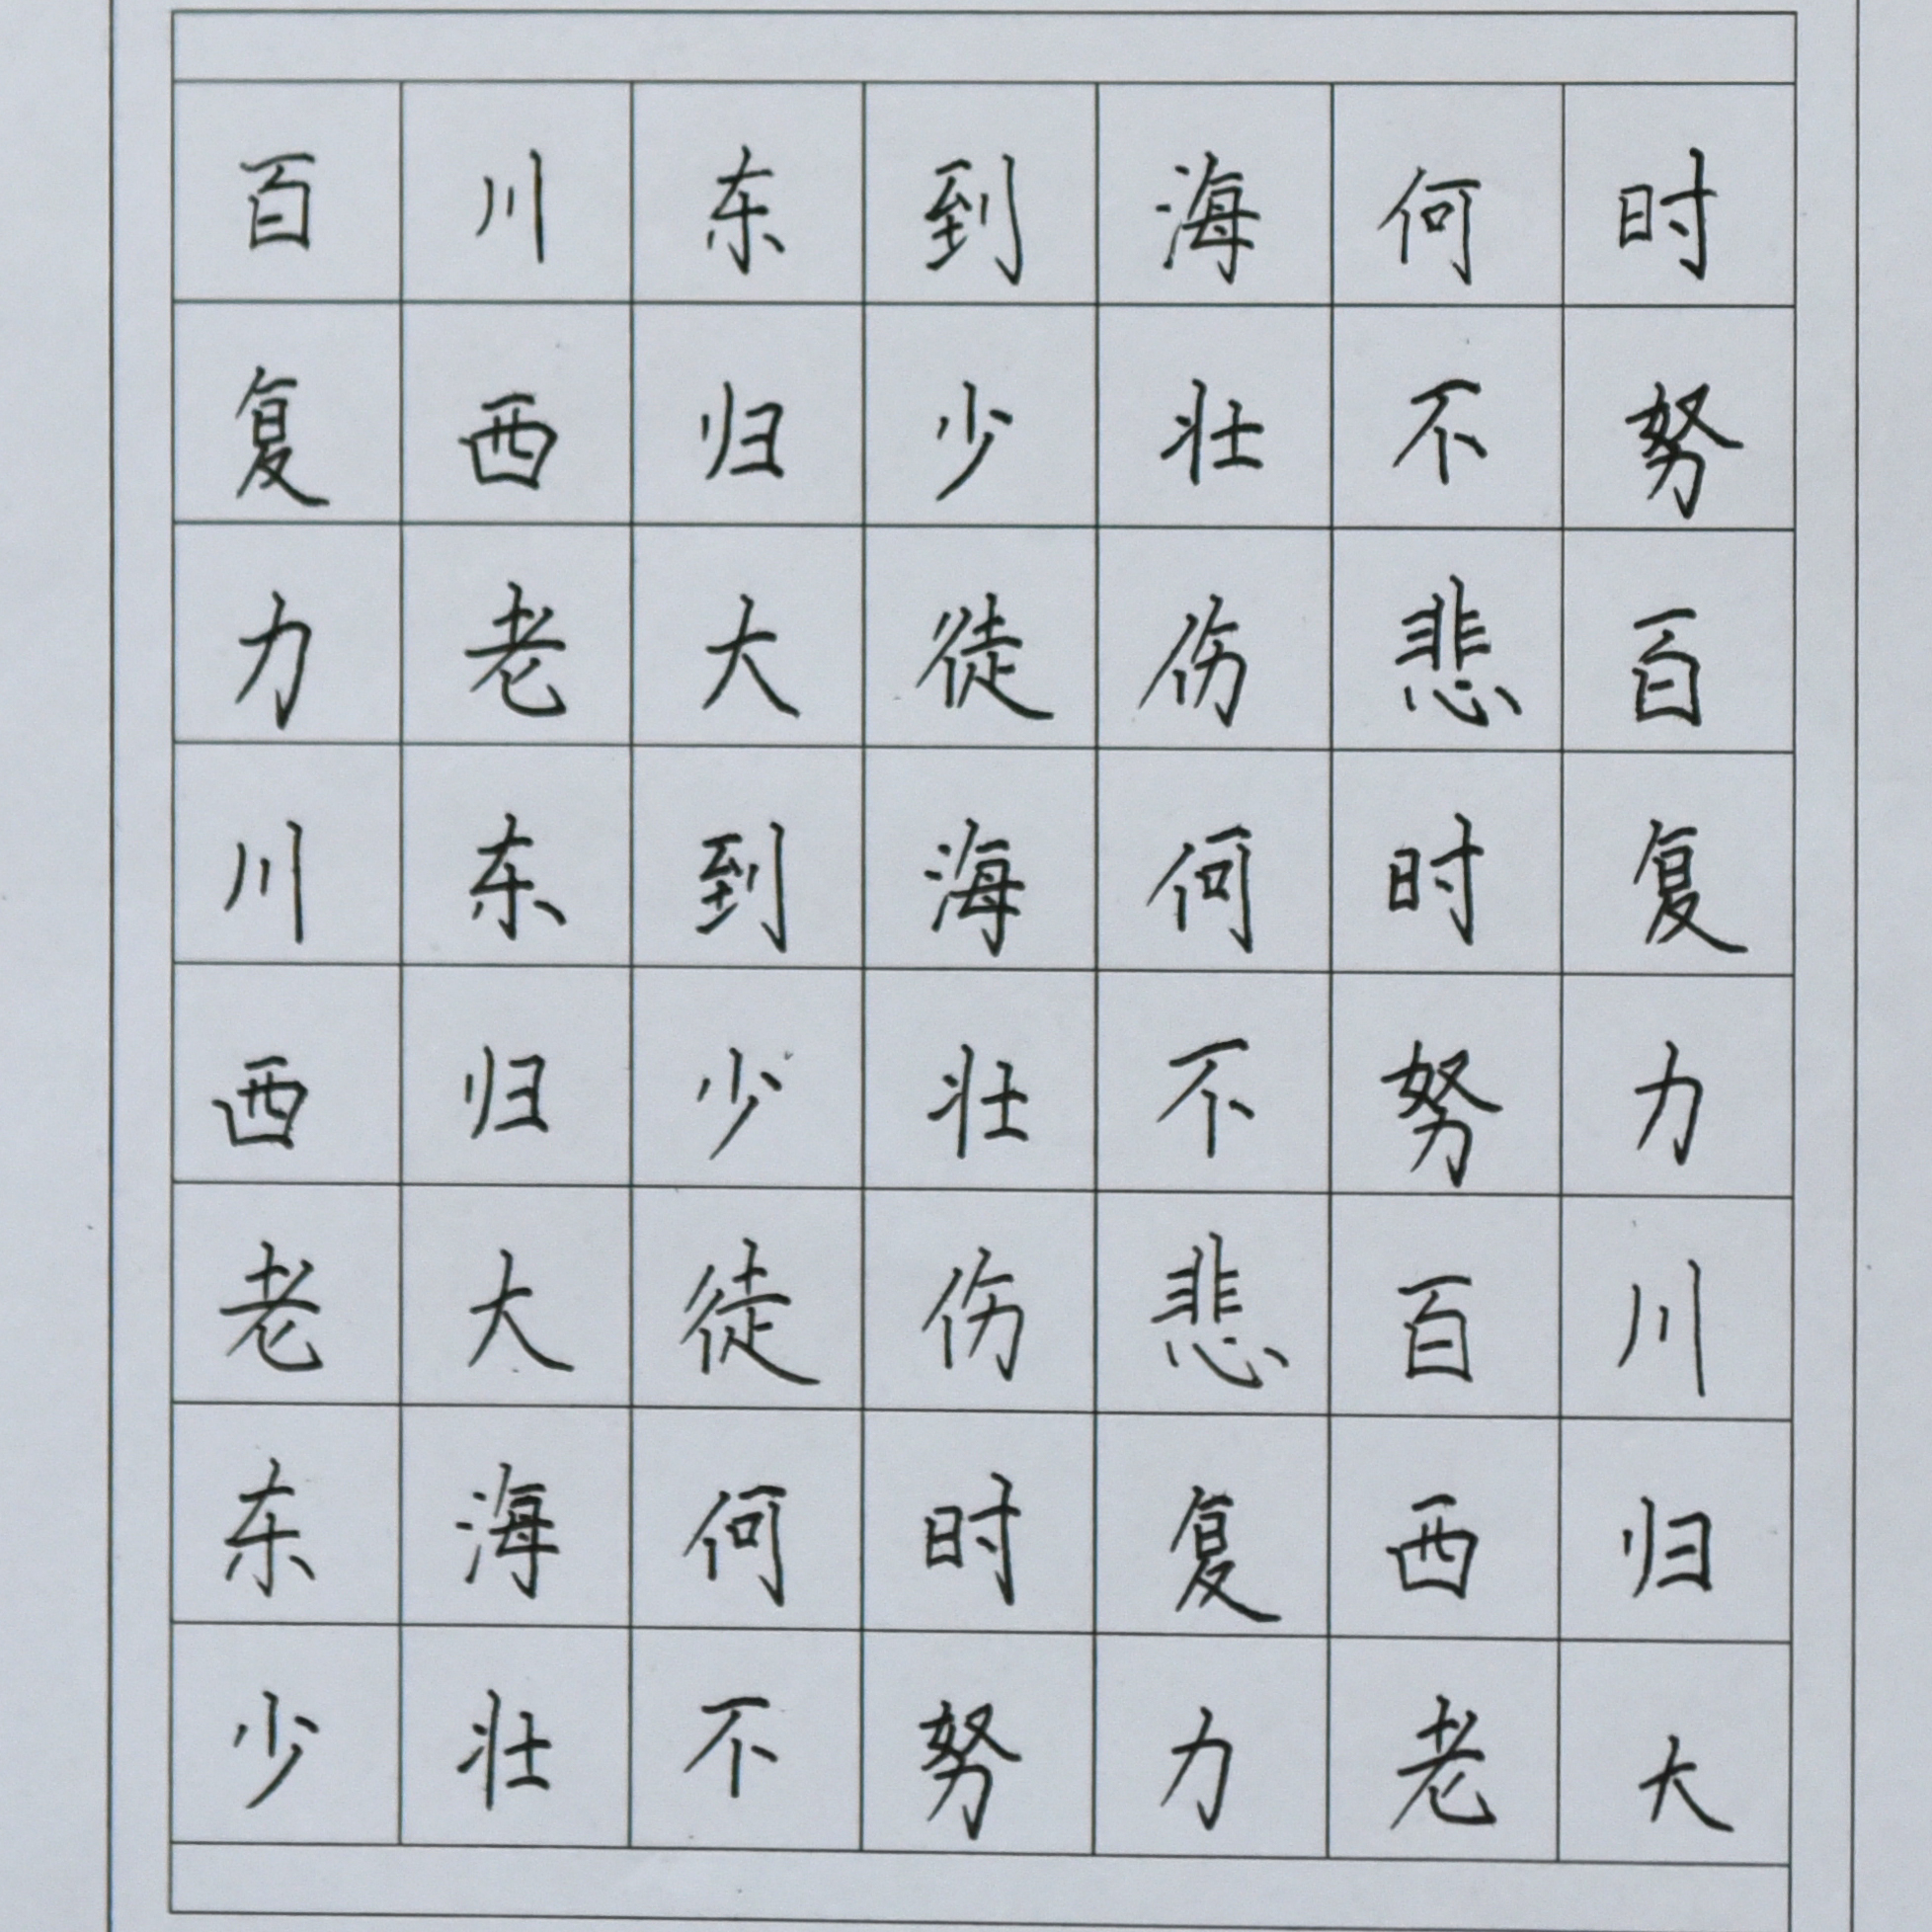 百川东到海何时
复西归少壮不努
力老大徒伤悲百
川东到海何时复
西归少壮不努力
老大徒伤悲百川
东海何时复西归
少壮不努力老大